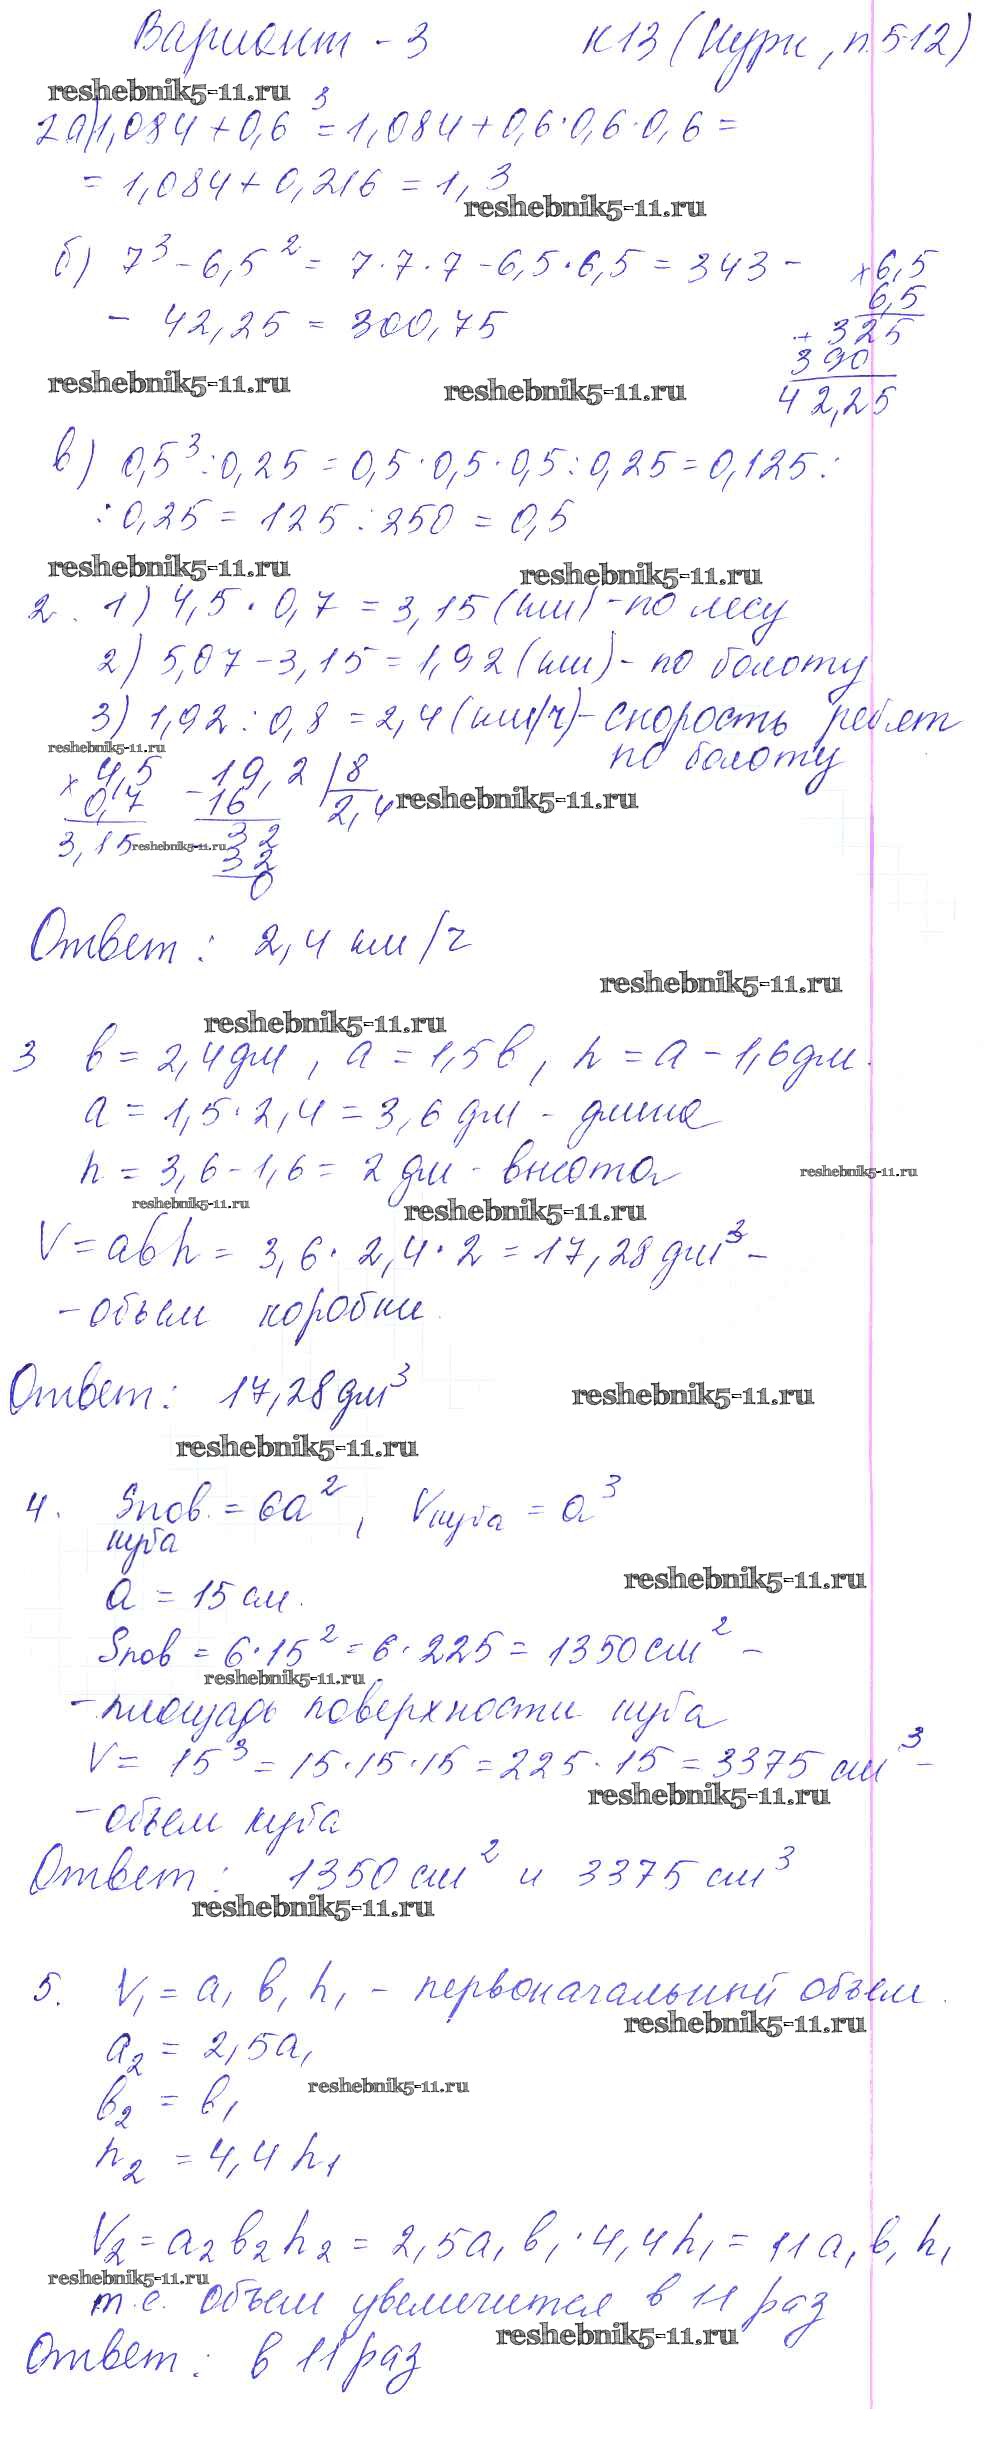 Вариант - 3 К13 (Нурк, п. 5-12)
reshebnik5-11.ru
2 а) 1,084 + 0,6³ = 1,084 + 0,6·0,6·0,6 =
= 1,084 + 0,216 = 1,3
reshebnik5-11.ru
б) 7³ - 6,5² = 7·7·7 - 6,5·6,5 = 343 -
- 42,25 = 300,75
× 6,5
6,5
+ 325
390
42,25
reshebnik5-11.ru reshebnik5-11.ru
в) 0,5³ : 0,25 = 0,5·0,5·0,5 : 0,25 = 0,125 :
: 0,25 = 125 : 250 = 0,5
reshebnik5-11.ru reshebnik5-11.ru
2. 1) 4,5 · 0,7 = 3,15 (км) - по лесу
2) 5,07 - 3,15 = 1,92 (км) - по болоту
3) 1,92 : 0,8 = 2,4 (км/ч) - скорость ребят
по болоту
reshebnik5-11.ru
× 4,5
0,7
3,15
- 19,2 | 8
16 2,4
32
32
0
reshebnik5-11.ru
reshebnik5-11.ru
Ответ: 2,4 км/ч
reshebnik5-11.ru
reshebnik5-11.ru
3 в = 2,4 дм, а = 1,5в, h = а - 1,6 дм.
а = 1,5·2,4 = 3,6 дм - длина
h = 3,6 - 1,6 = 2 дм - высота
reshebnik5-11.ru
reshebnik5-11.ru reshebnik5-11.ru
V = abh = 3,6·2,4·2 = 17,28 дм³ -
- объем коробки.
Ответ: 17,28 дм³
reshebnik5-11.ru
reshebnik5-11.ru
4. Sпов. = 6а², Vкуба = а³
куба
а = 15 см.
reshebnik5-11.ru
Sпов = 6·15² = 6·225 = 1350 см² -
reshebnik5-11.ru
- площадь поверхности куба
V = 15³ = 15·15·15 = 225·15 = 3375 см³ -
reshebnik5-11.ru
- объем куба
Ответ: 1350 см² и 3375 см³
reshebnik5-11.ru
5. V₁ = а₁ в₁ h₁ - первоначальный объем.
reshebnik5-11.ru
а₂ = 2,5а₁
reshebnik5-11.ru
в₂ = в₁
h₂ = 4,4 h₁
V₂ = а₂ в₂ h₂ = 2,5а₁ в₁ · 4,4h₁ = 11а₁ в₁ h₁
reshebnik5-11.ru
т.е. объем увеличится в 11 раз
reshebnik5-11.ru
Ответ: в 11 раз